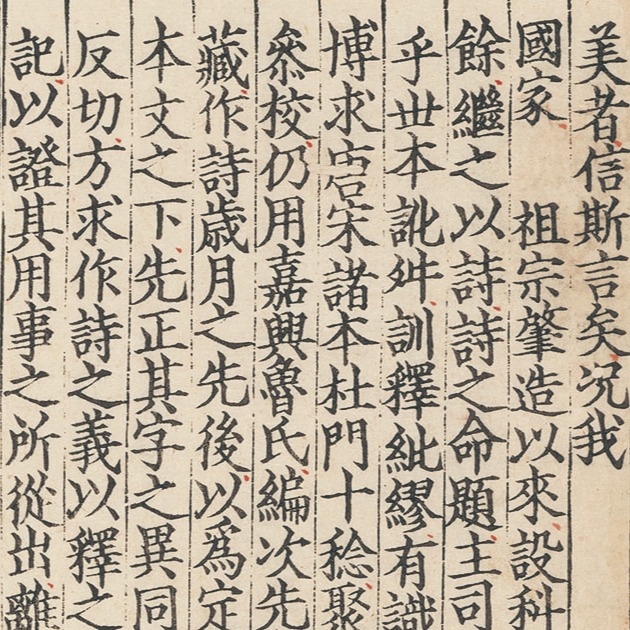 美者信斯言矣况我
國家 祖宗肇造以來設科
餘繼之以詩詩之命題主司
乎世本訛舛訓釋紕繆有識
博求唐宋諸本杜門十稔聚
叅校仍用嘉興魯氏編次先
藏作詩歲月之先後以爲定
本文之下先正其字之異同
反切方求作詩之義以釋之
記以證其用事之所從出離